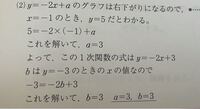 (2) y=-2x+aのグラフは右下がりになるので、
x=-1のとき, y=5だとわかる。
5=-2×(-1)+a
これを解いて, a=3
よって, この1次関数の式は y=-2x+3
bはy=-3のときのxの値なので
-3=-2b+3
これを解いて, b=3　a=3, b=3